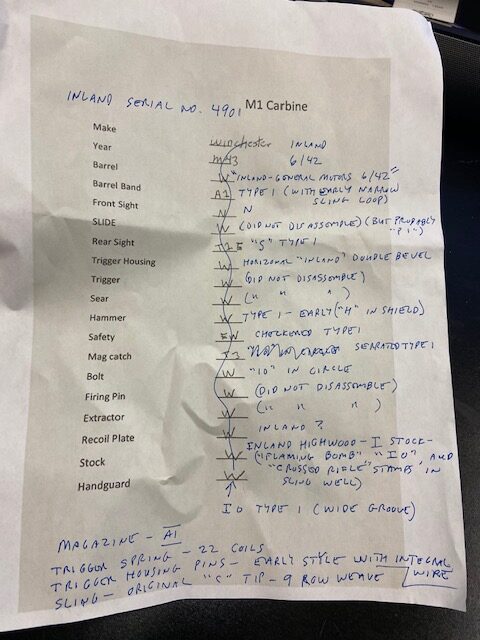 INLAND SERIAL NO. 4901 M1 Carbine
Make Winchester INLAND
Year M43 6/42
Barrel W "INLAND-GENERAL MOTORS 6/42"
Barrel Band A1 TYPE 1 (WITH EARLY NARROW
SLING LOOP)
Front Sight N N
SLIDE W (DID NOT DISASSEMBLE) (BUT PROBABLY
Rear Sight "S" TYPE 1
Trigger Housing W HORIZONAL "INLAND" DOUBLE BEVEL
Trigger W (DID NOT DISASSEMBLE)
Sear W (" " ")
Hammer W TYPE 1 - EARLY ("H" IN SHIELD)
Safety EW CHECKERED TYPE 1
Mag catch SERRATED TYPE 1
Bolt W "IO" IN CIRCLE
Firing Pin W (DID NOT DISASSEMBLE)
Extractor W (" " ")
Recoil Plate W INLAND ?
Stock W INLAND HIGHWOOD - I STOCK -
("FLAMING BOMB" "IO" AND
"CROSSED RIFLE" STAMPS IN
SLING WELL)
Handguard W
IO TYPE 1 (WIDE GROOVE)
MAGAZINE - AI
TRIGGER SPRING - 22 COILS
TRIGGER HOUSING PINS - EARLY STYLE WITH INTEGRAL
WIRE
SLING - ORIGINAL "C" TIP - 9 ROW WEAVE